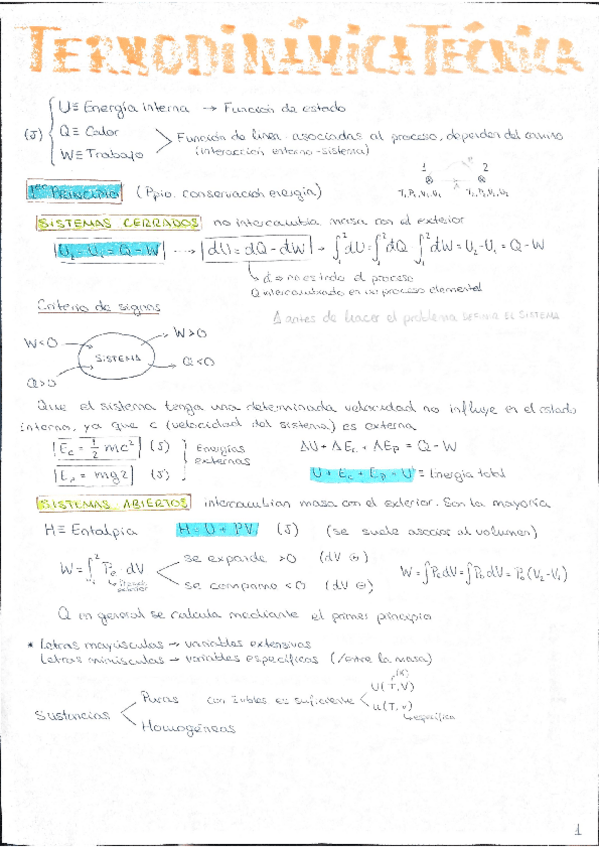 TERMODINÁMICA TÉCNICA
(J) U ≡ Energía interna → Función de estado
Q ≡ Calor
W ≡ Trabajo
Función de línea asociadas al proceso, dependen del camino
(interacción entorno-sistema)
1 2
1er PRINCIPIO (Ppio. conservación energía)
T₁,P₁,V₁,U₁ T₂,P₂,V₂,U₂
SISTEMAS CERRADOS no intercambia masa con el exterior
U₂ - U₁ = Q - W → dU = dQ - dW → ∫₁² dU = ∫₁² dQ - ∫₁² dW = U₂ - U₁ = Q - W
d → no es todo el proceso
Q intercambiado en un proceso elemental
Criterio de signos
Δ antes de hacer el problema SISTEMA
W<0 W>0
SISTEMA
Q>0 Q<0
Que el sistema tenga una determinada velocidad no influye en el estado
interno, ya que c (velocidad del sistema) es externa
Ec = 1/2 mc² (J) Energías externas ΔU + ΔEc + ΔEp = Q - W
Ep = mgz (J) U + Ec + Ep = U ≡ Energía total
SISTEMAS ABIERTOS intercambian masa con el exterior. Son la mayoría
H ≡ Entalpía H = U + PV (J) (se suele asociar al volumen)
W = ∫₁² Pe · dV se expande >0 (dV ⊕)
presión exterior
se comprime <0 (dV ⊖)
W = ∫PedV = ∫PedV = Pe(V₂-V₁)
Q en general se calcula mediante el primer principio
* Letras mayúsculas → variables extensivas
Letras minúsculas → variables específicas (/entre la masa)
Sustancias Puras con 2 vbles es suficiente U(T,V)
u(T,v)
específica
Homogéneas
1